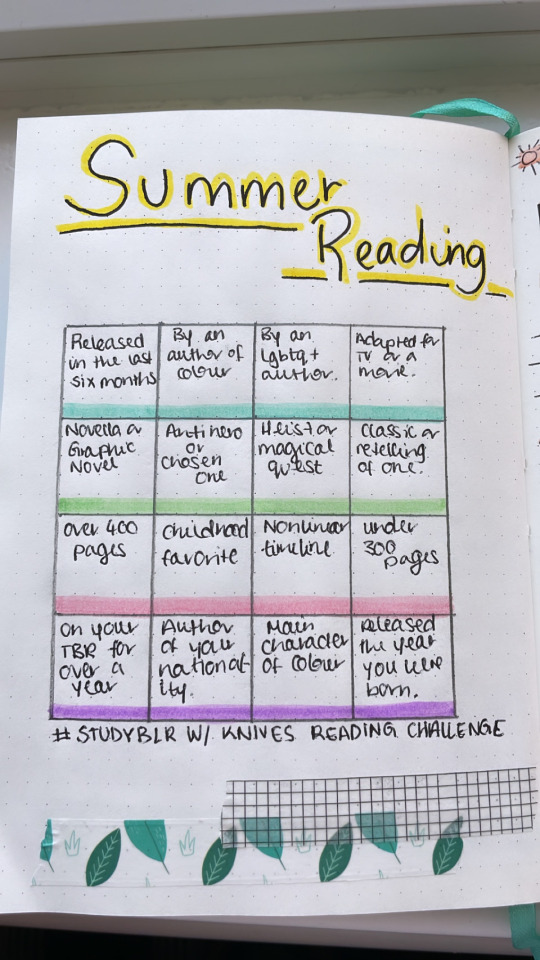 Summer
Reading
Released
in the last
six months
By an
author of
colour
By an
lgbtq+
author.
Adapted for
TV or a
movie.
Novella or
Graphic
Novel
Antihero
or
chosen
one
Heist or
magical
quest
Classic or
retelling
of one.
Over 400
pages
Childhood
favorite
Nonlinear
timeline
under
300
pages
On your
TBR for
over a
year
Author
of your
national-
ity.
Main
character
of colour
Released
the year
you were
born.
# STUDYBLR W/ KNIVES READING CHALLENGE